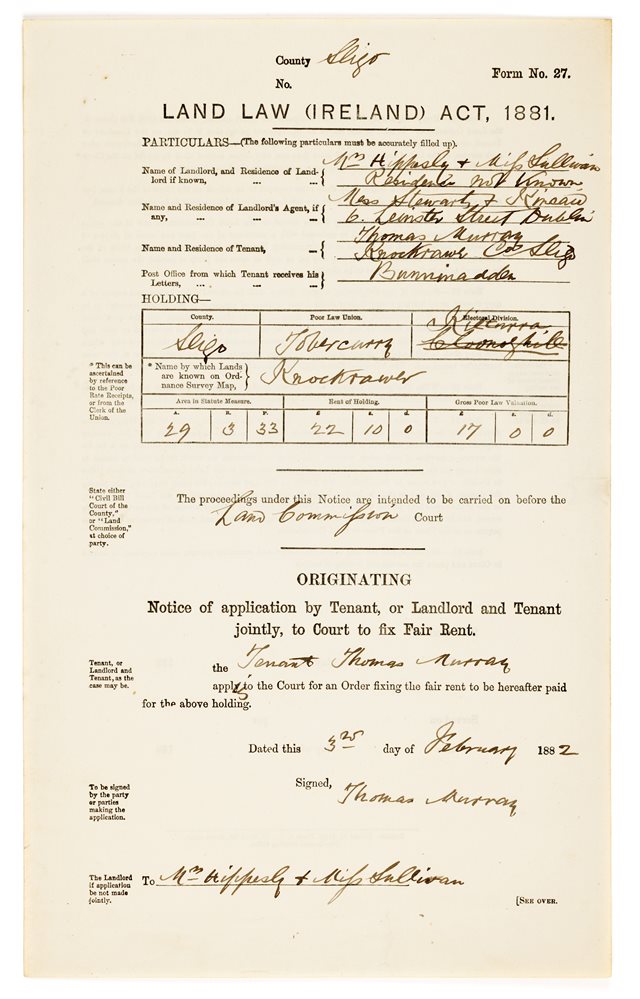 County Sligo
Form No. 27.
No.
LAND LAW (IRELAND) ACT, 1881.
PARTICULARS—(The following particulars must be accurately filled up).
Name of Landlord, and Residence of Landlord if known, ... ... Mrs Hippesly & Miss Sullivan
Residence not Known
Name and Residence of Landlord's Agent, if any, ... ... ... Mess Stewarts & Kincaid
6. Leinster Street Dublin
Name and Residence of Tenant, ... Thomas Murray
Knockrawer Co Sligo
Post Office from which Tenant receives his Letters, ... ... ... Bunninadden
HOLDING—
County. Poor Law Union. Electoral Division.
Sligo Tobercurry Kilturra
Cloonoghill
* This can be ascertained by reference to the Poor Rate Receipts, or from the Clerk of the Union.
* Name by which Lands are known on Ordnance Survey Map, Knockrawer
Area in Statute Measure. Rent of Holding. Gross Poor Law Valuation.
A. R. P. £ s. d. £ s. d.
29 3 33 22 10 0 17 0 0
State either "Civil Bill Court of the County," or "Land Commission," at choice of party.
The proceedings under this Notice are intended to be carried on before the
Land Commission Court
ORIGINATING
Notice of application by Tenant, or Landlord and Tenant
jointly, to Court to fix Fair Rent.
Tenant, or Landlord and Tenant, as the case may be.
the Tenant Thomas Murray
applys to the Court for an Order fixing the fair rent to be hereafter paid
for the above holding.
Dated this 3rd day of February 1882
To be signed by the party or parties making the application.
Signed, Thomas Murray
The Landlord if application be not made jointly.
To Mrs Hippesly & Miss Sullivan
[SEE OVER.